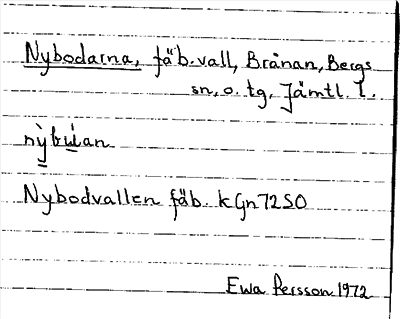 Nybodarna, fäb.vall, Brånan, Bergs
sn, o. tg, Jämtl. l.
nỳbú̱an
Nybodvallen fäb. kGn72SO
Ewa Persson 1972